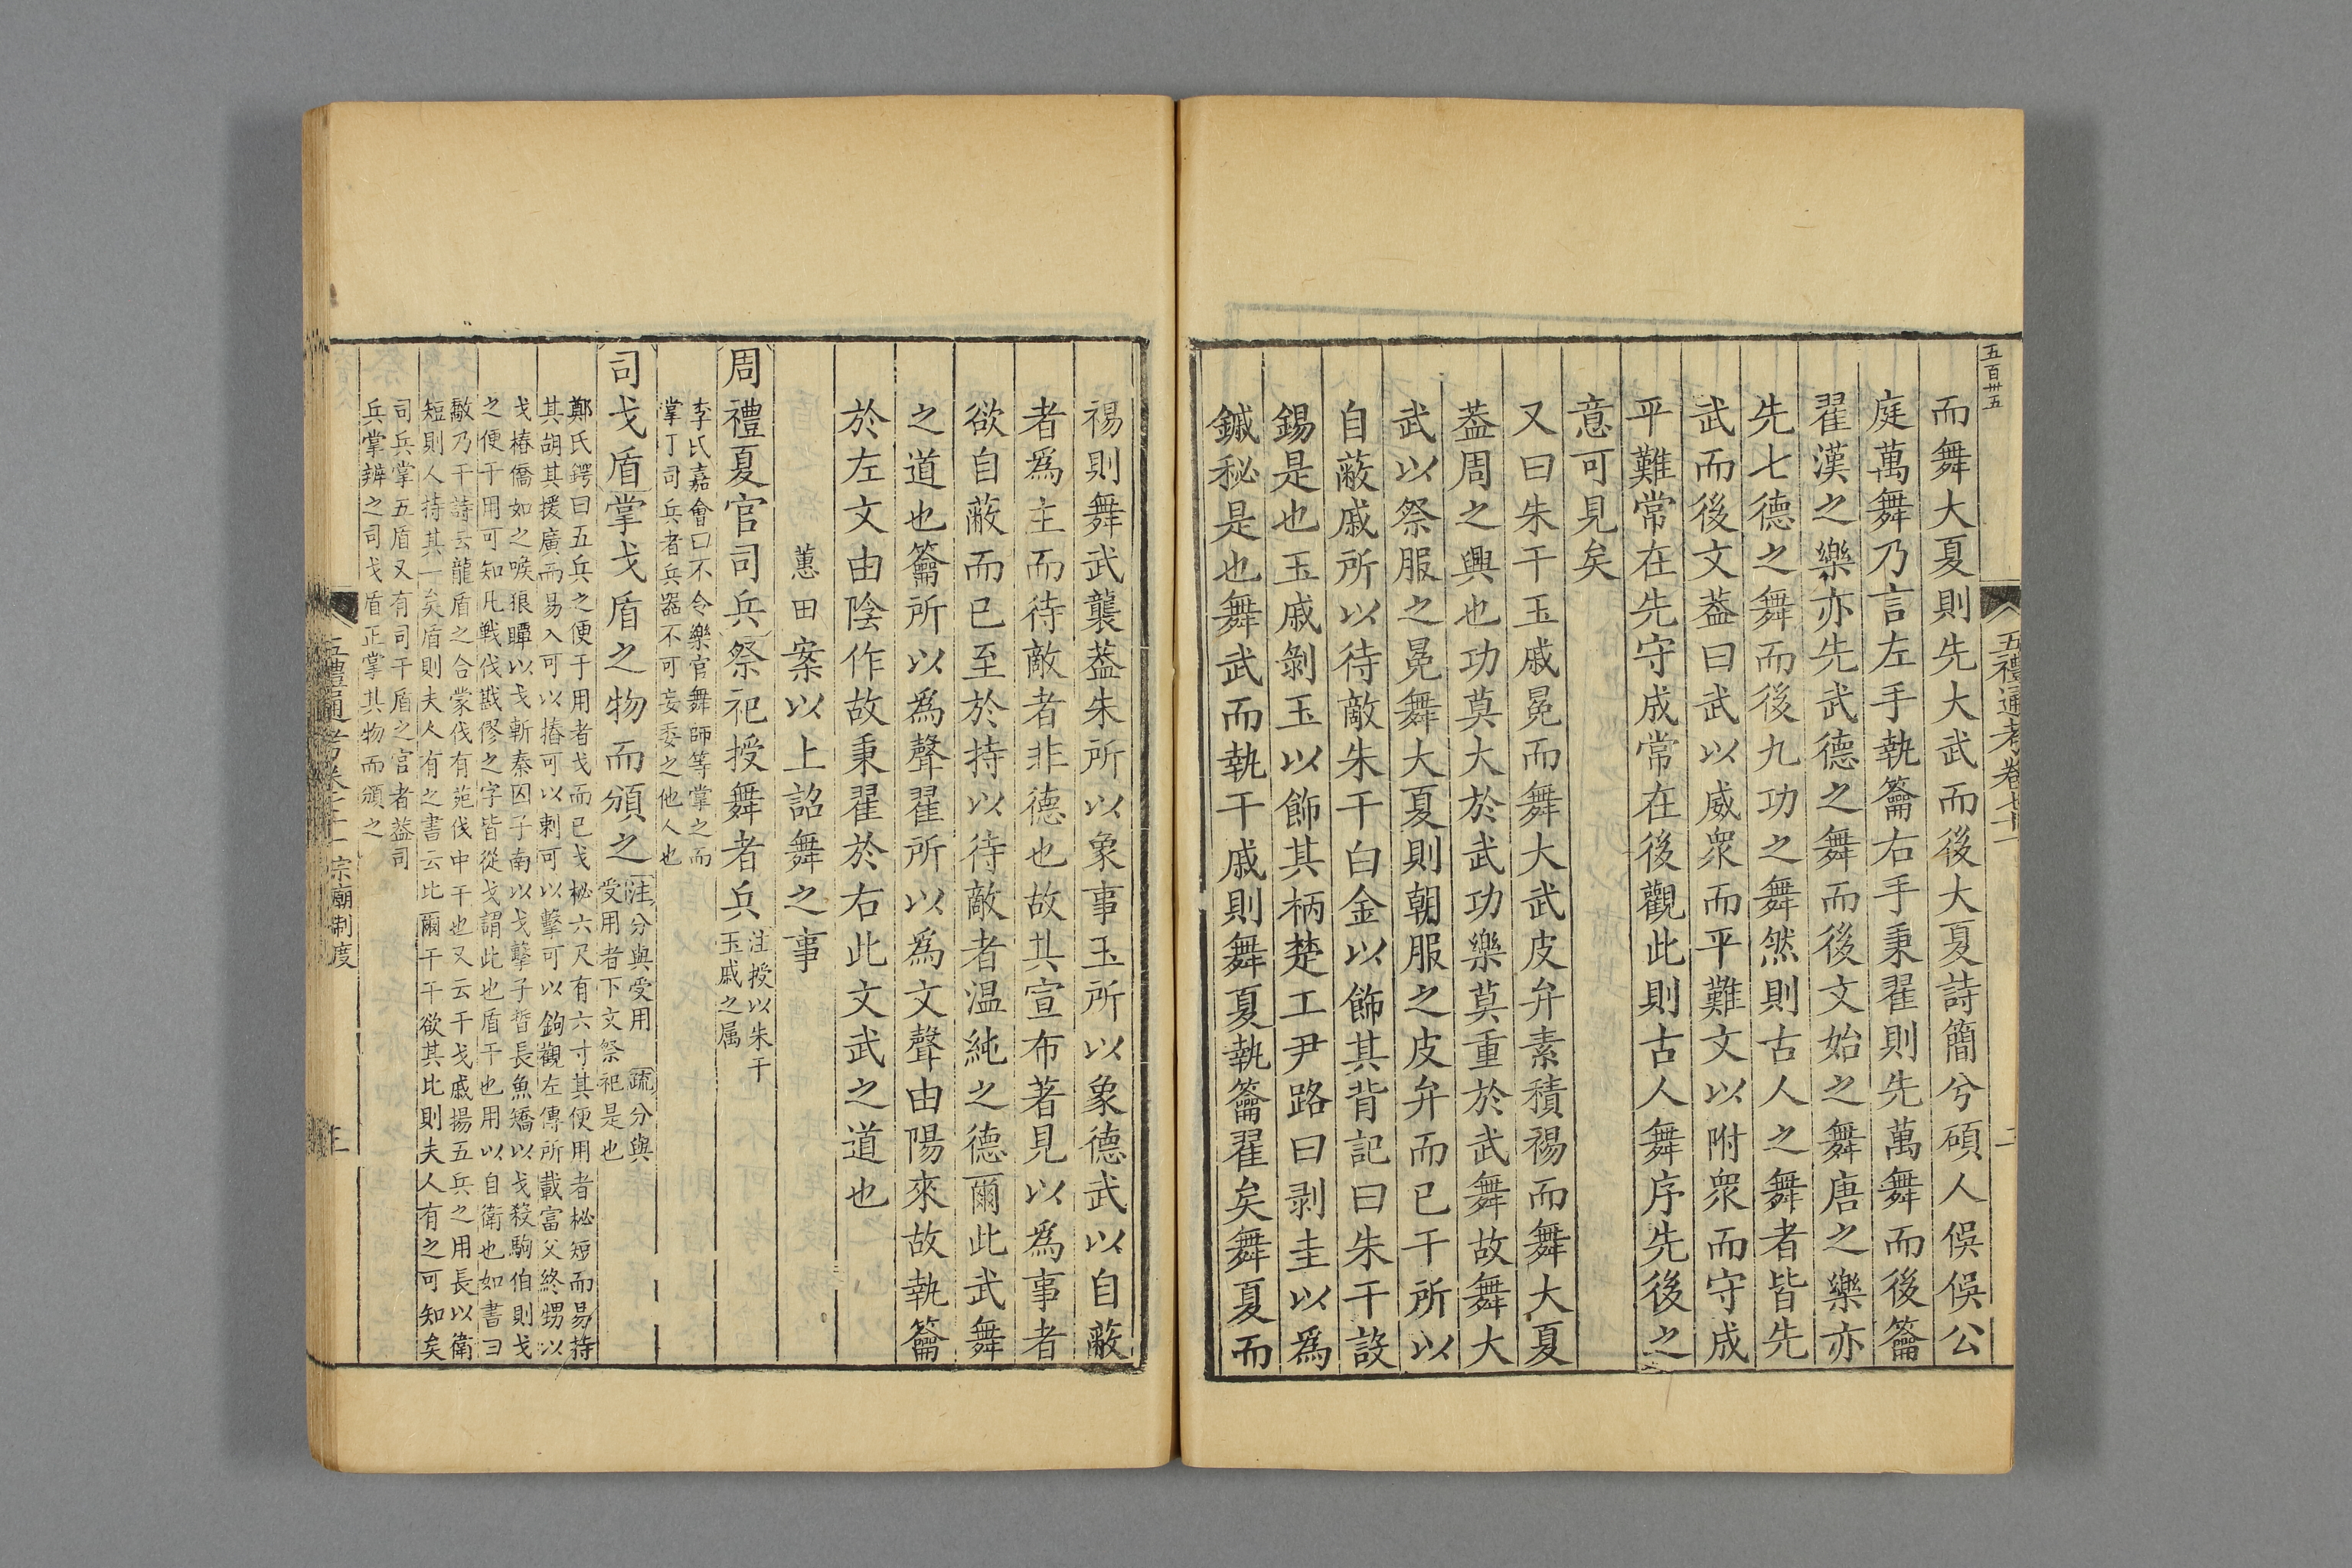 五百卅五
五禮通考卷七十一
二
而舞大夏則先大武而後大夏詩簡兮碩人俁俁公
庭萬舞乃言左手執籥右手秉翟則先萬舞而後籥
翟漢之樂亦先武德之舞而後文始之舞唐之樂亦
先七德之舞而後九功之舞然則古人之舞者皆先
武而後文葢曰武以威衆而平難文以附衆而守成
平難常在先守成常在後觀此則古人舞序先後之
意可見矣
又曰朱干玉戚冕而舞大武皮弁素積裼而舞大夏
葢周之興也功莫大於武功樂莫重於武舞故舞大
武以祭服之冕舞大夏則朝服之皮弁而已干所以
自蔽戚所以待敵朱干白金以飾其背記曰朱干設
錫是也玉戚剝玉以飾其柄楚工尹路曰剥圭以爲
鏚秘是也舞武而執干戚則舞夏執籥翟矣舞夏而
裼則舞武襲葢朱所以象事玉所以象德武以自蔽
者爲主而待敵者非德也故其宣布著見以爲事者
欲自蔽而已至於持以待敵者温純之德爾此武舞
之道也籥所以爲聲翟所以爲文聲由陽來故執籥
於左文由陰作故秉翟於右此文武之道也
蕙田案以上詔舞之事
周禮夏官司兵祭祀授舞者兵
注授以朱干
玉戚之属
李氏嘉會曰不令樂官舞師等掌之而
掌丁司兵者兵器不可妄委之他人也
司戈盾掌戈盾之物而頒之
注分與受用 疏分與
受用者下文祭祀是也
鄭氏鍔曰五兵之便于用者戈而已戈柲六尺有六寸其便用者柲短而易持
其胡其援廣而易入可以摏可以剌可以擊可以鉤觀左傳所載富父終甥以
戈樁僑如之喉狼瞫以戈斬秦囚子南以戈擊子晳長魚矯以戈殺駒伯則戈
之便于用可知凡戦伐戡僇之字皆從戈謂此也盾干也用以自衛也如書曰
敿乃干詩云龍盾之合蒙伐有苑伐中干也又云干戈戚揚五兵之用長以衛
短則人持其一矣盾則夫人有之書云比爾干干欲其比則夫人有之可知矣
司兵掌五盾又有司干盾之官者葢司
兵掌辨之司戈盾正掌其物而頒之
五禮通考卷七十一 宗廟制度